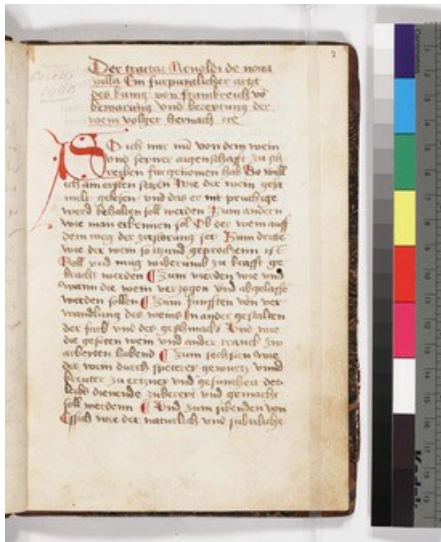 Der tractat Arnoldi de noua
villa Ein furpuntlicher artzt
des kunig von franckreich vō
bewarung vnd berertung der
wein volget hernach etc
SO ich mir nu von dem wein
vnd seiner aigenschafft zu sch
reiben furgenomen hab So will
ich am ersten sagen wie der wein
gelesen vnd das er nit
werd behalten soll werden Zum andern
wie man erkennen sol Ob der wein auff
dem weg der zerstorung sey Zum dritten
wie der wein so gebrochenn ist
Soll vnd mug widerumb zu krafft ge
bracht werden Zum vierden wie vnd
wann die wein verzogen vnd abgelasse
werden sollen Zum funfften von ver
wandlung des weins In ander gestalten
der farb vnd des geschmacks Vnd wie
die gesoten wein vnd ander tranck zu
arbeiten habend Zum sechsten wie
der wein durch specerey gewurtz vnnd
kreuter zu ertzney vnd gesuntheit des
leibs dienende zuberait vnd gemacht
soll werdenn Vnd zum sibenden von
Essich wie der naturlich vnd